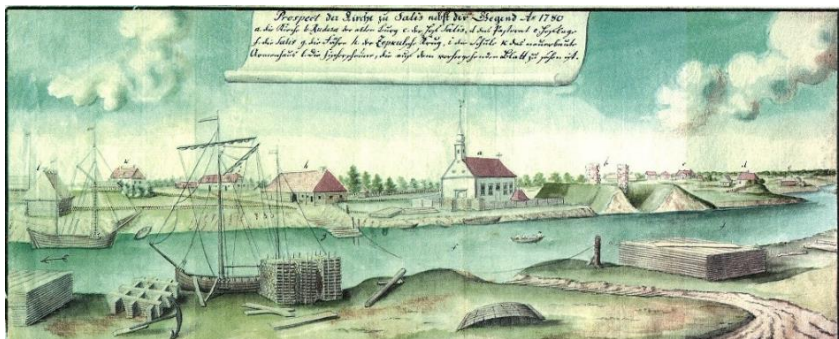 Prospect der Kirche zu Salis nebst der Gegend Ao 1780
a. die Kirche b. Rudera der alten Burg c. der Hof Salis, d. das Pastorat e.
f. die Salis g. die Fähre h. der Krug, i. die Schule k. das neuerbaute
Armenhaus l. die die auf dem vorhergehenden Blatt zu sehen ist.